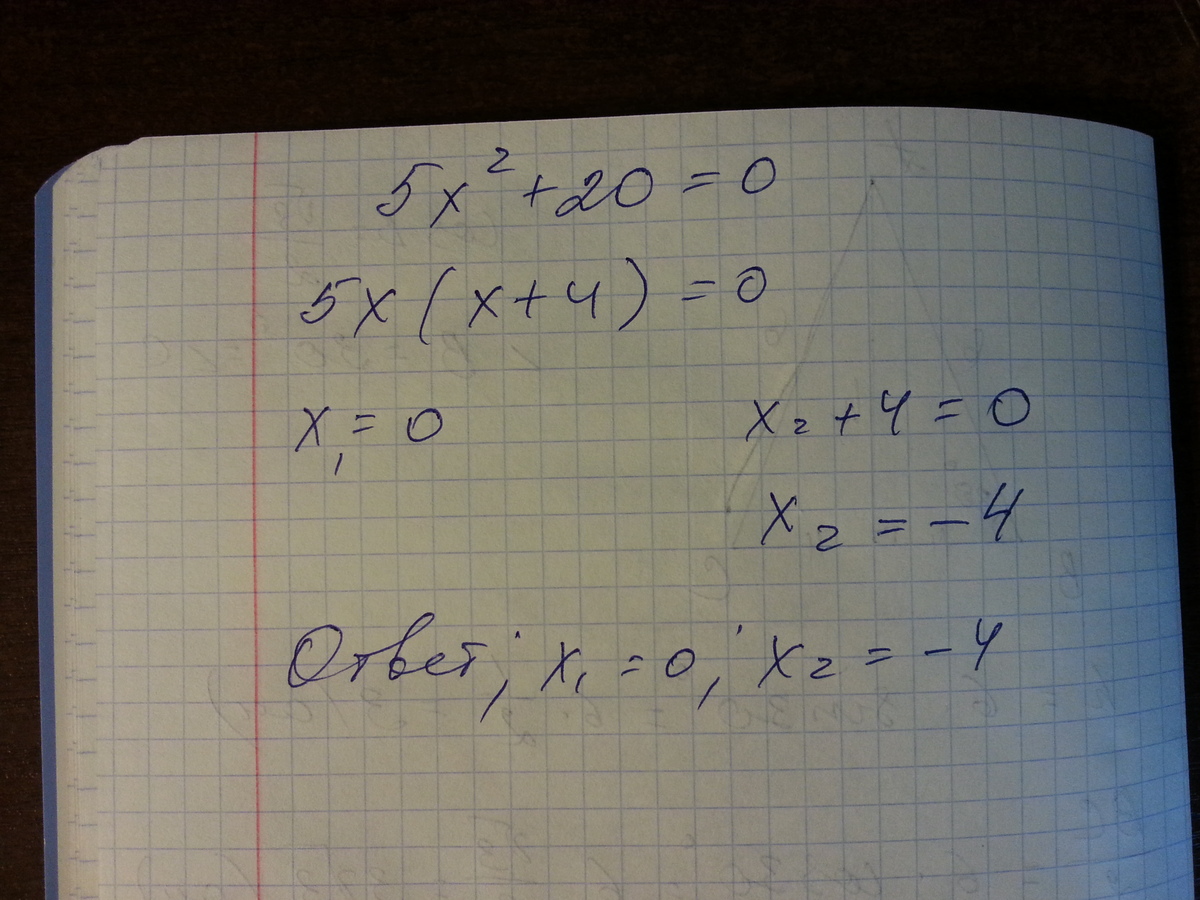 5x² + 20 = 0
5x(x + 4) = 0
x₁ = 0
x₂ + 4 = 0
x₂ = -4
Ответ; x₁ = 0; x₂ = -4